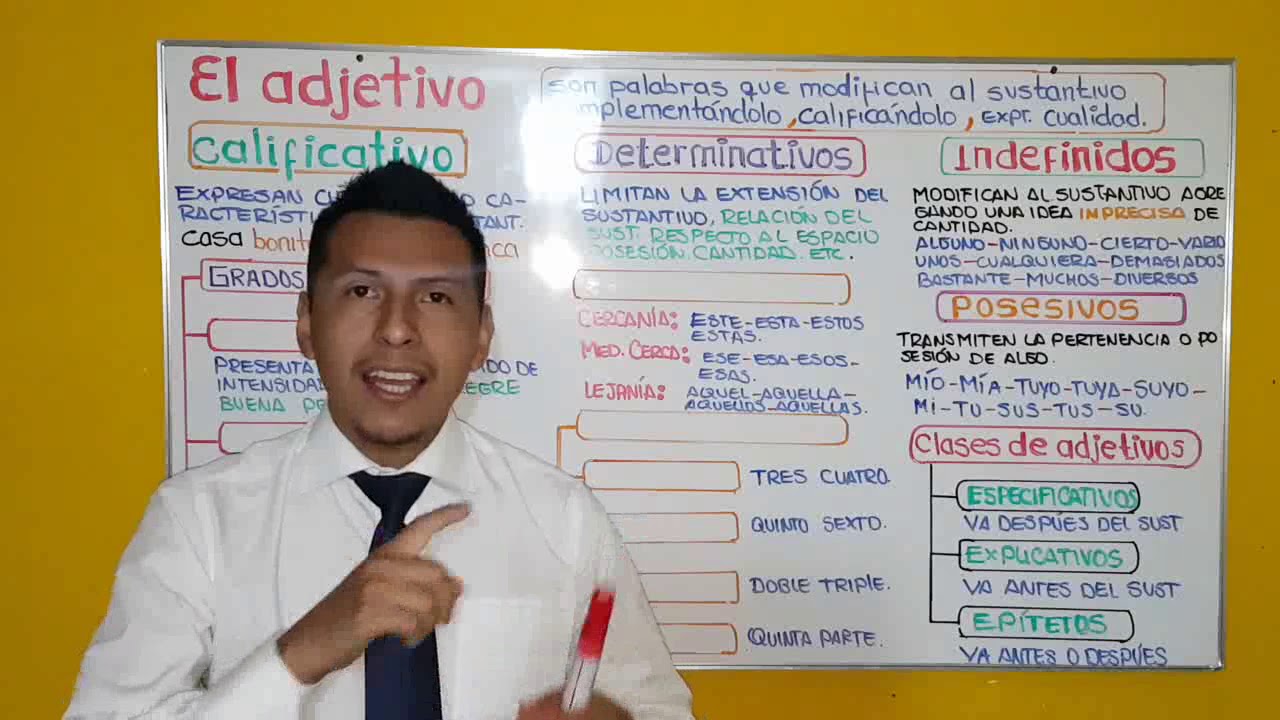 El adjetivo
son palabras que modifican al sustantivo
mplementándolo, calificándolo, EXPT. CUALIDAD.
Calificativo
EXPRESAN CA-
RACTERÍSTI TANT.
CASA bonit
GRADOS
PRESENTA DO DE
INTENSIDAD EGRE
BUENA
Determinativos
LIMITAN LA EXTENSIÓN DEL
SUSTANTIVO, RELACIÓN DEL
SUST. RESPECTO AL ESPACIO
POSESIÓN, CANTIDAD. ETC.
CERCANÍA: ESTE-ESTA-ESTOS
ESTAS.
MED. CERCA: ESE-ESA-ESOS-
ESAS.
LEJANÍA: AQUEL-AQUELLA-
AQUELLOS-AQUELLAS.
TRES CUATRO.
QUINTO SEXTO.
DOBLE TRIPLE.
QUINTA PARTE.
Indefinidos
MODIFICAN AL SUSTANTIVO AGRE
GANDO UNA IDEA IMPRECISA DE
CANTIDAD.
ALGUNO-NINGUNO-CIERTO-VARIO
UNOS-CUALQUIERA-DEMASIADOS
BASTANTE-MUCHOS-DIVERSOS
POSESIVOS
TRANSMITEN LA PERTENENCIA O PO
SESIÓN DE ALGO.
MÍO-MÍA-TUYO-TUYA-SUYO-
MI-TU-SUS-TUS-SU.
Clases de adjetivos
ESPECIFICATIVOS
VA DESPUÉS DEL SUST
EXPLICATIVOS
VA ANTES DEL SUST
EPÍTETOS
VA ANTES O DESPÚES